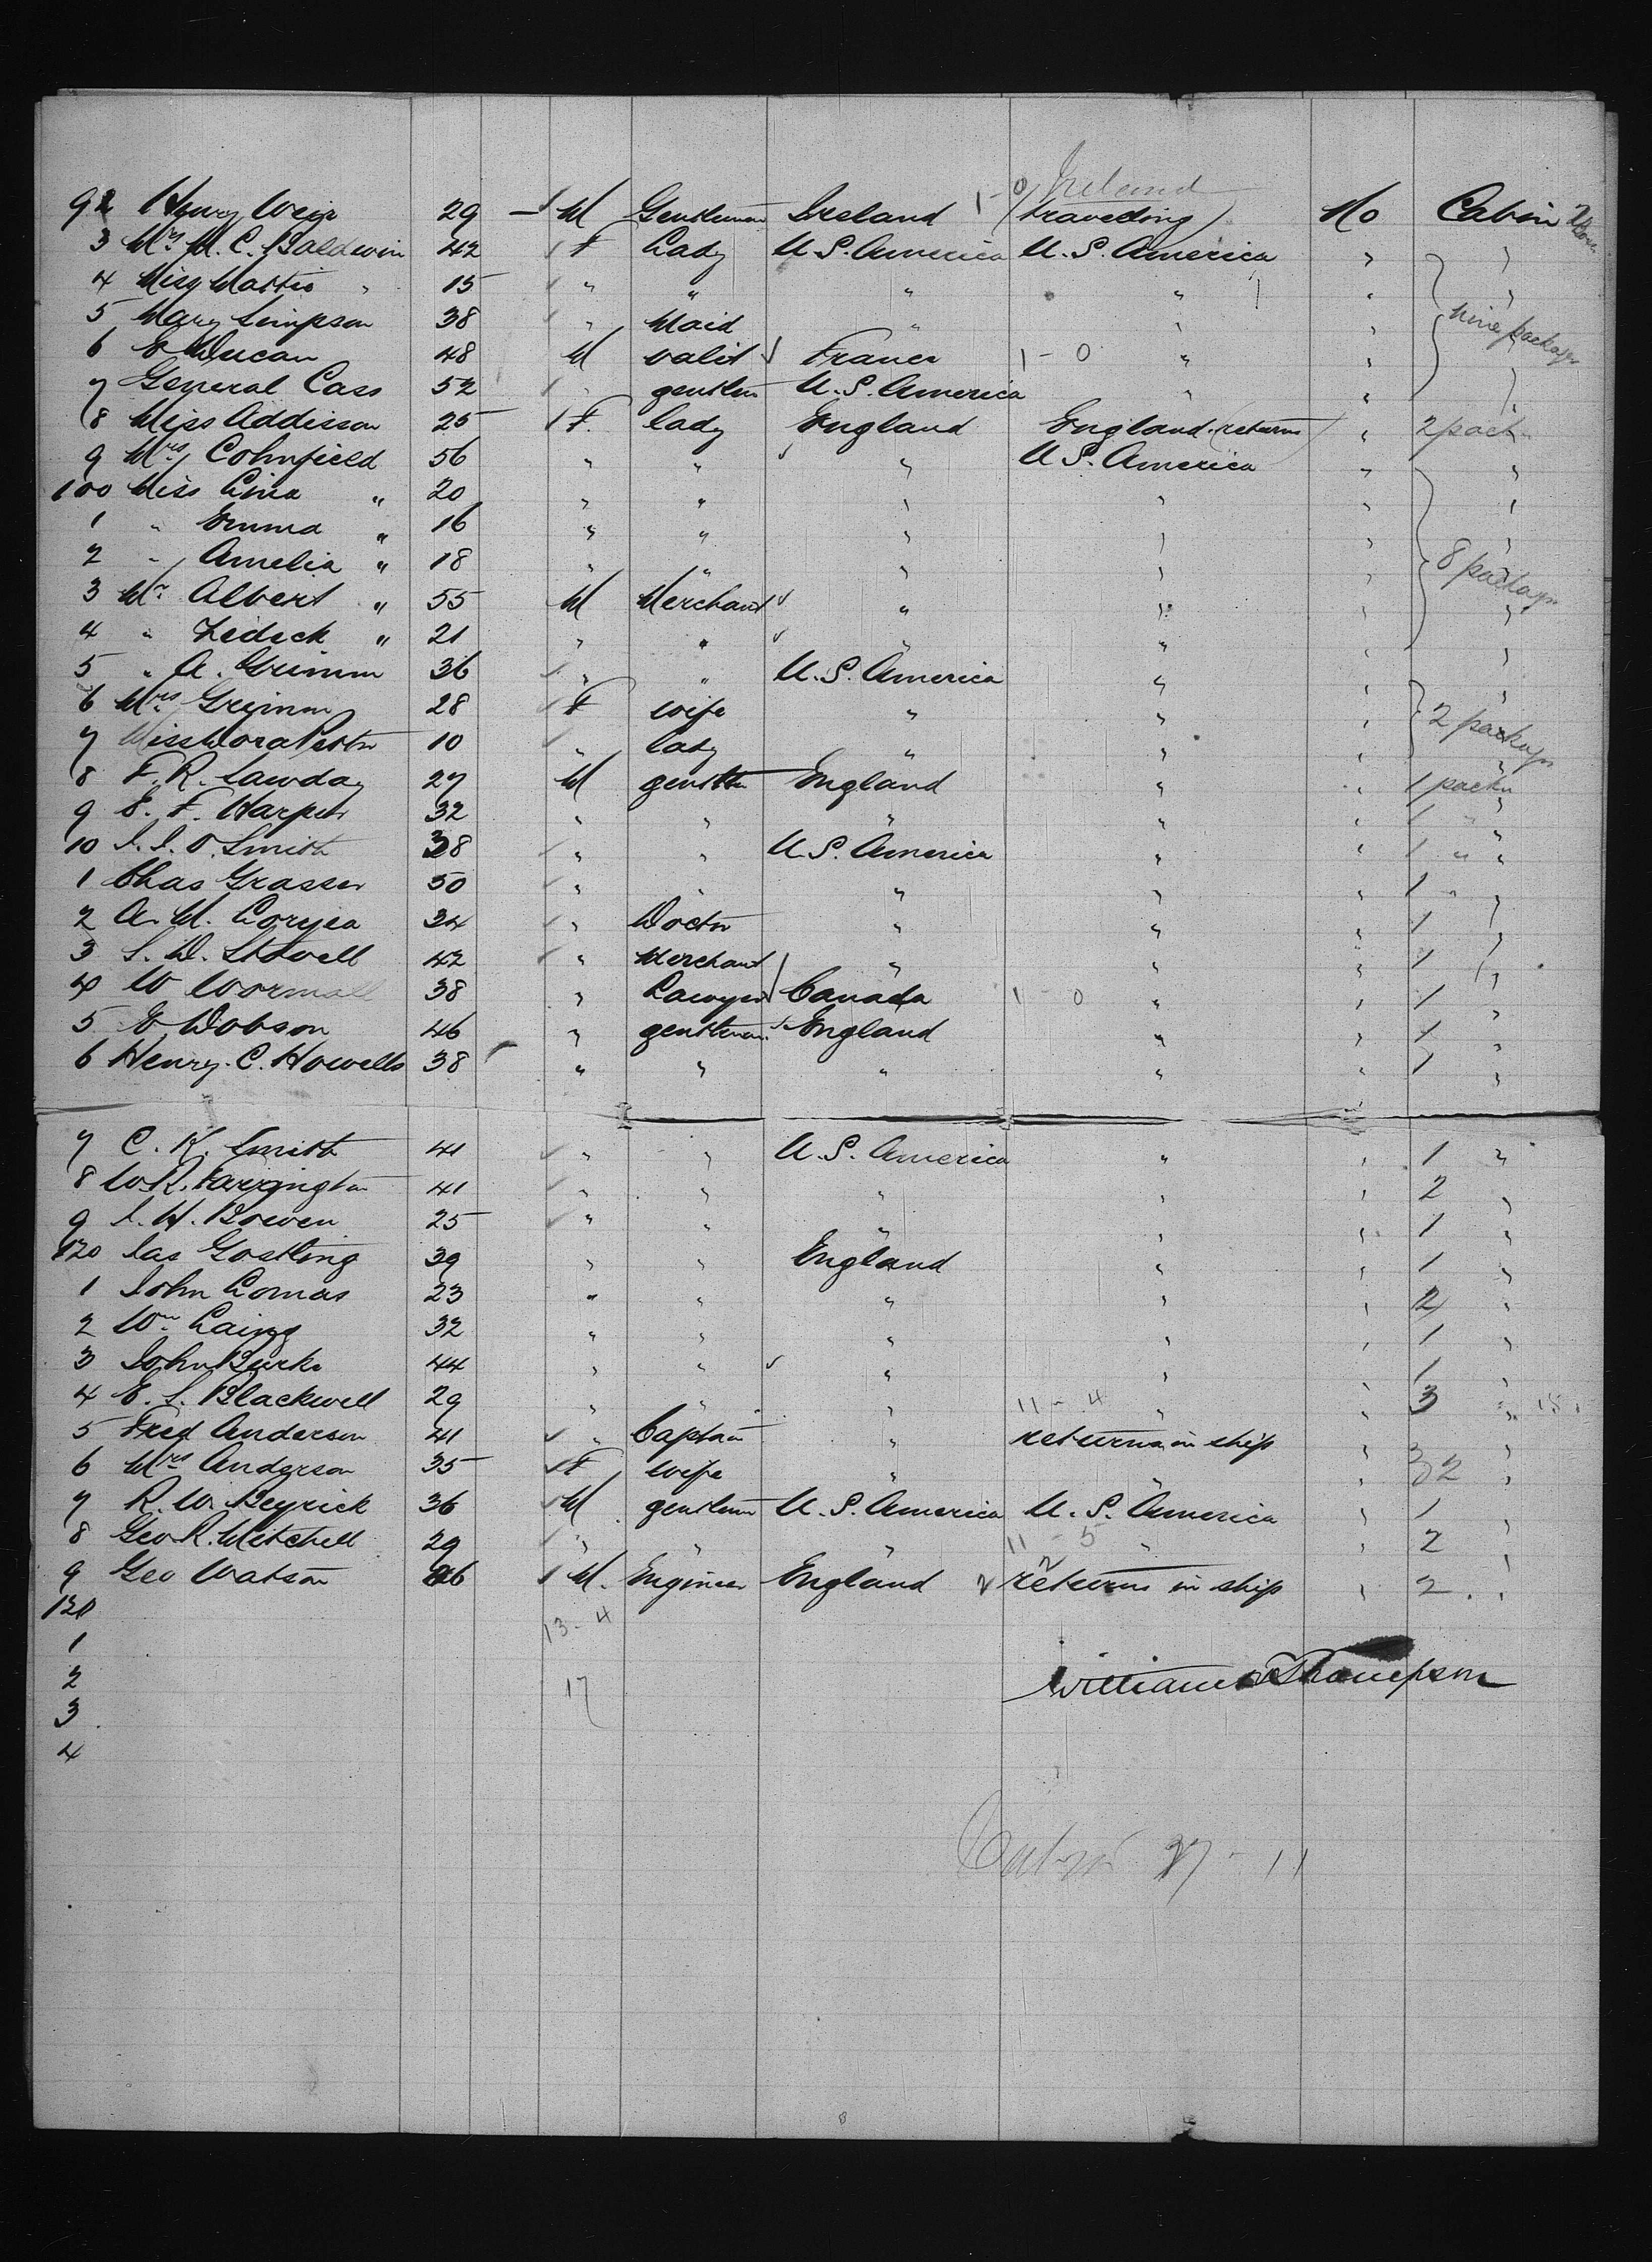 Ireland
92 Henry Weir 29 — M Gentleman Ireland 1-0 (travelling) No Cabin
3 Mrs M. C. Baldwin 42 ✓ F Lady U.S. America U.S. America " "
4 Miss Mattie " 15 ✓ " " " " " "
5 Mary Simpson 38 ✓ " Maid " " " nine packages
6 E Ducan 48 M valit ✓ France 1-0 " "
7 General Cass 52 ✓ " gentlm U.S. America " " "
8 Miss Addisson 25 ✓ F. lady England England (returns) " 2 packs
9 Mrs Cohnfield 56 " " ✓ " U.S. America " "
100 Miss Lina " 20 " " " " " "
1 " Emma " 16 " " " " " "
2 " Amelia " 18 " " " " " 8 packages
3 Mr Albert " 55 M Merchant ✓ " " " "
4 " Zedeck " 21 " " ✓ " " " "
5 " A. Grimm 36 ✓ " " U.S. America " " "
6 Mrs Grimm 28 ✓ F wife " " " 2 packages
7 Miss Dora 10 ✓ " lady " " " "
8 F. R. Lawday 27 M gentlm England " " 1 packe
9 E. F. Harper 32 " " " " " 1 " "
10 J. J. O. Smith 38 ✓ " " U.S. America " " 1 " "
1 Chas Grasser 50 ✓ " " " " " 1 " "
2 A. M. Coryea 34 ✓ " Doctor " " " 1 "
3 S. D. Stovell 42 ✓ " Merchant " " " 1 "
4 W Wormall 38 " Lawyer ✓ Canada 1-0 " " 1 "
5 E Dobson 46 " gentleman ✓ England " " 1 "
6 Henry. C. Howells 38 " " " " " 1 "
7 C. K. Smith 41 ✓ " " U.S. America " " 1 "
8 W. R. Farrington 41 ✓ " " " " " 2 "
9 J. H. Bowen 25 ✓ " " " " " 1 "
120 Jas Gostling 39 " " England " " 1 "
1 John Lomas 23 " " " " " 2 "
2 Wm Laing 32 " " " " " 1 "
3 John Burke 44 " " ✓ " " " 1 "
4 E. S. Blackwell 29 " " " 11-4 " " 3 "
5 Fred Anderson 41 ✓ " Captain " returns in ship "
6 Mrs Anderson 35 ✓ F wife " " " 2 "
7 R. W. Beyrick 36 ✓ M gentlem U.S. America U.S. America " 1 "
8 Geo R. Mitchell 29 ✓ " " " 11-5 " " 2 "
9 Geo Watson 26 ✓ M. Engineer England ✓ returns in ship " 2 "
120 13-4
1
2 17 William Thompson
3
4
27-11